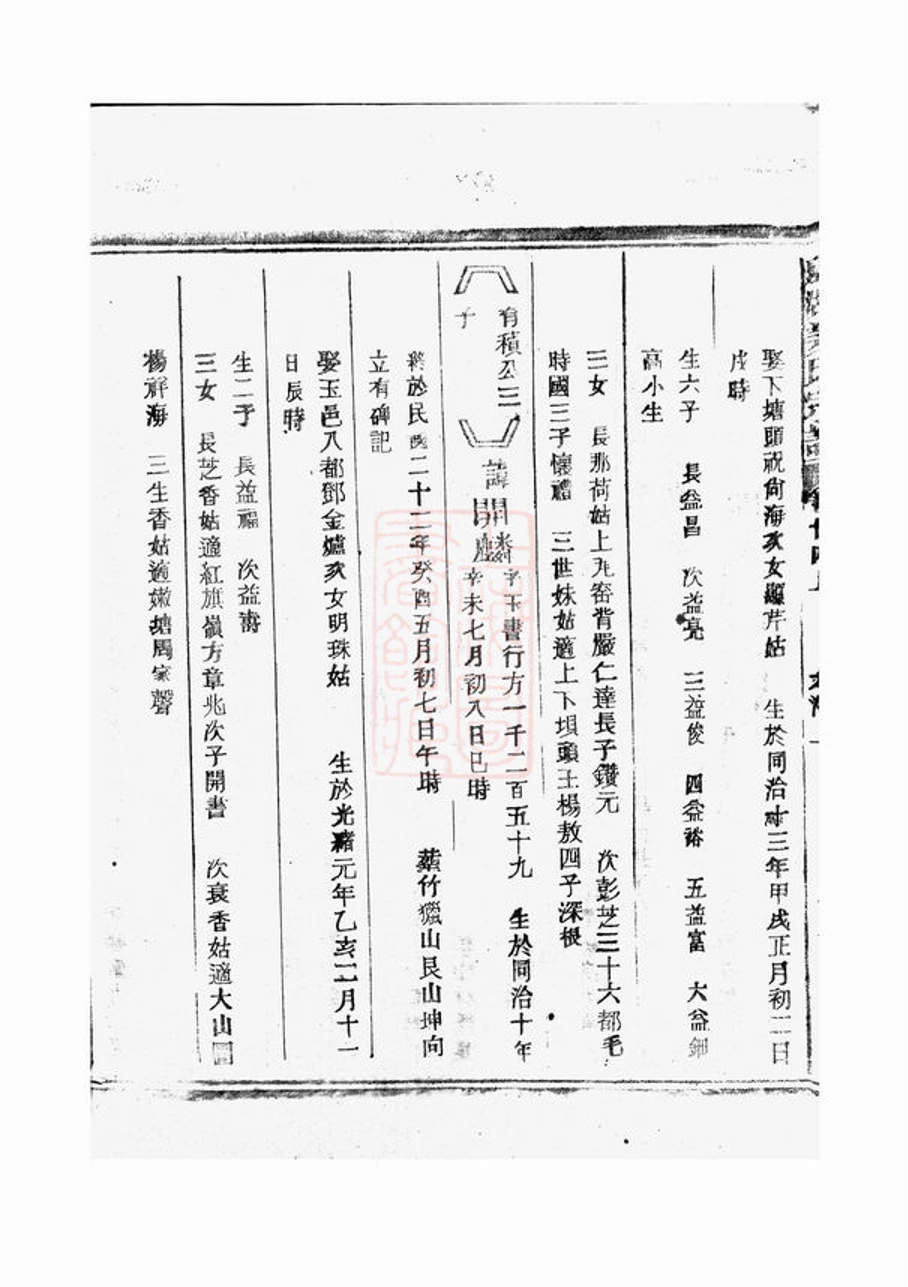 娶下塘頭祝尙海亥女顯芹姑　生於同治十三年甲戌正月初二日
戌時
生六子　長益昌　次益亮　三益俊　四益裕　五益富　六益鈿
高小生
三女　長那荷姑上𠀋窑背嚴仁達長子鑽元　次彭芝三十六都毛
時國三子懷禮　三世妹姑適上下垻頭王楊敖四子深根
育積公三
子
諱開麟字玉書行方一千二百五十九　生於同治十年
辛未七月初八日巳時
終於民國二十二年癸酉五月初七日午時　塟竹玁山艮山坤向
立有碑記
娶玉邑八都鄧金爐亥女明珠姑　生於光緖元年乙亥二月十一
日辰時
生二子　長益福　次益壽
三女　長芝香姑適紅旗嶺方章兆次子開書　次衰香姑適大山
楊祥海　三生香姑適嫩塘周家聲